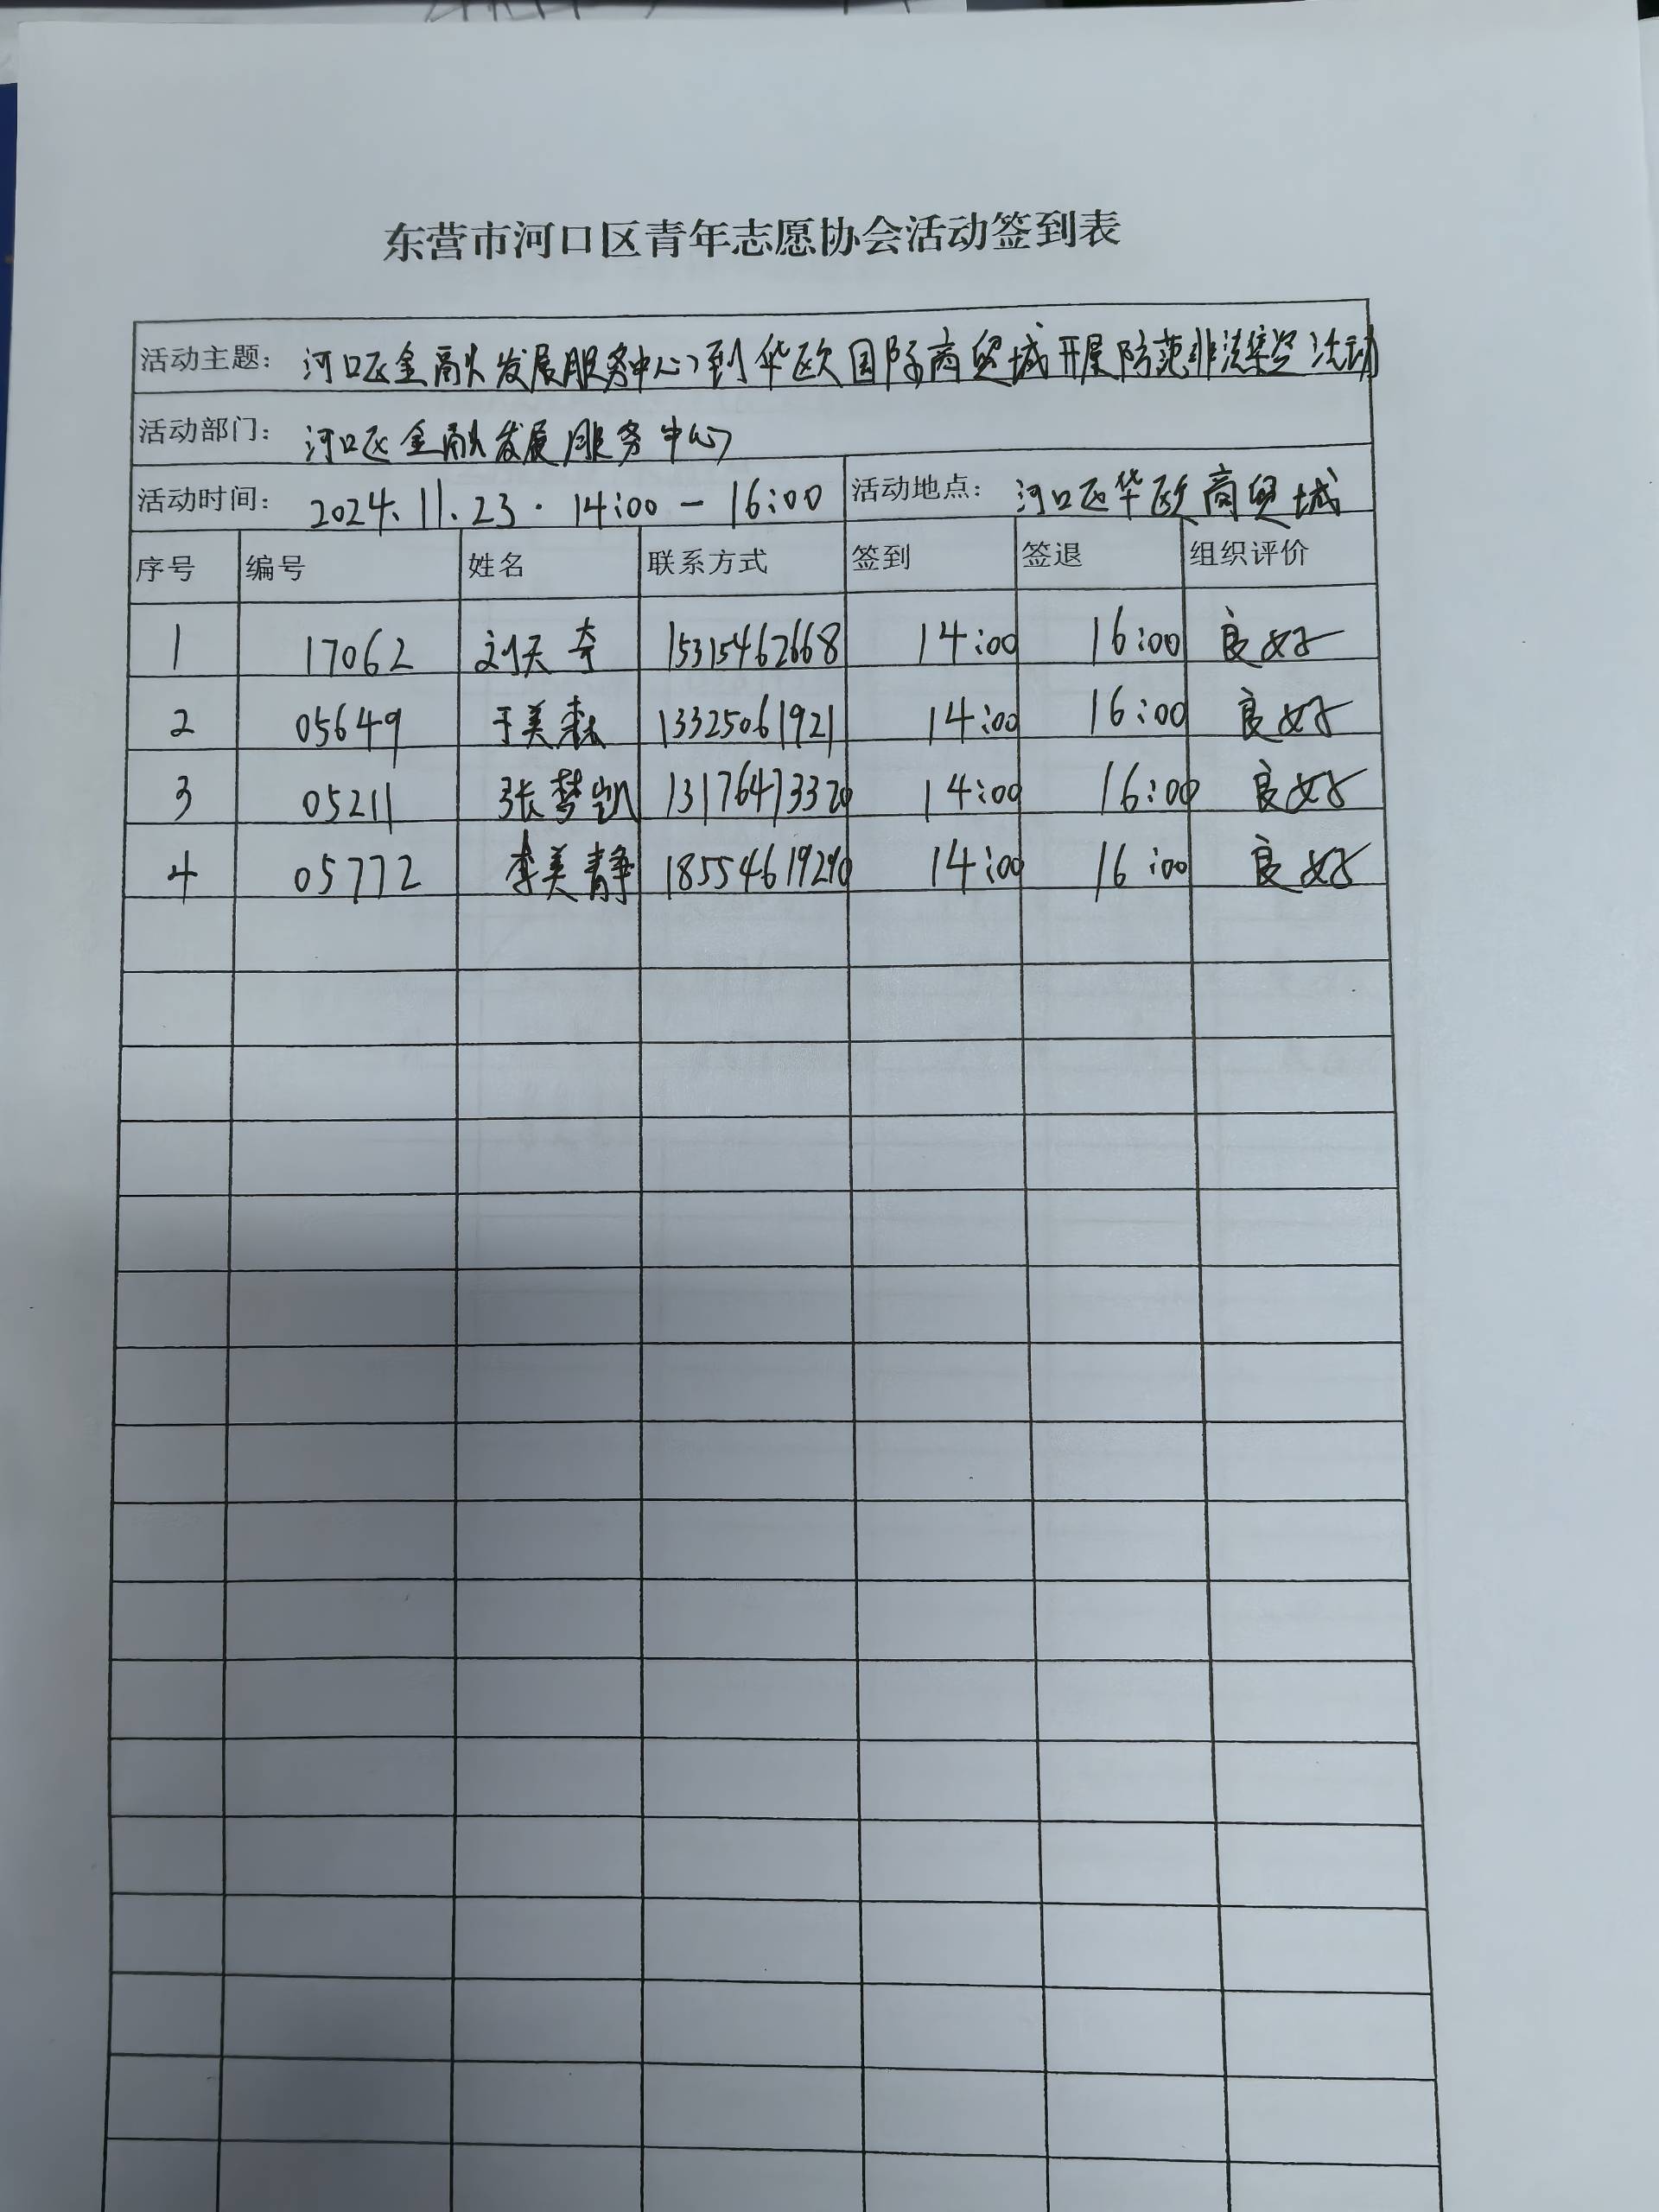 东营市河口区青年志愿协会活动签到表
活动主题： 河口区金融发展服务中心到华欧国际商贸城开展防范非法集资活动
活动部门： 河口区金融发展服务中心
活动时间： 2024.11.23. 14:00-16:00 活动地点： 河口区华欧商贸城
序号 编号 姓名 联系方式 签到 签退 组织评价
1 17062 刘天奇 15315462668 14:00 16:00 良好
2 05649 于美森 13325061921 14:00 16:00 良好
3 05211 张梦凯 13176473320 14:00 16:00 良好
4 05772 李美静 18554619290 14:00 16:00 良好